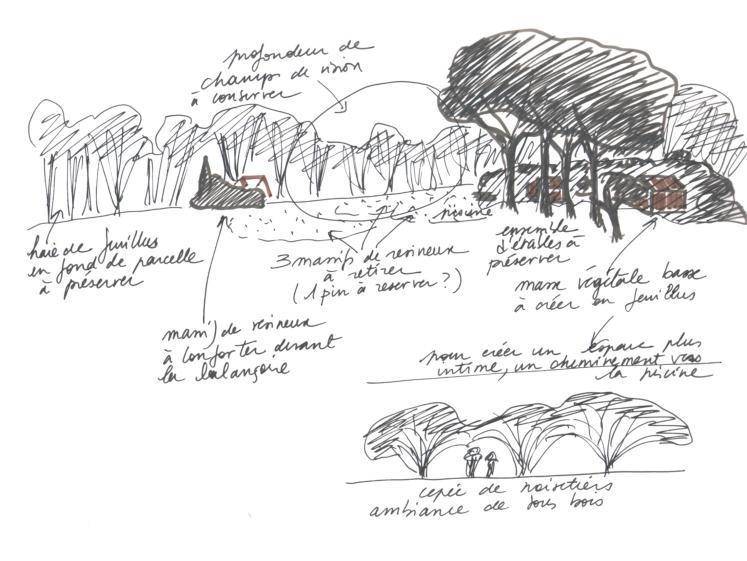 profondeur de
champs de vision
à conserver
haie de feuillus
en fond de parcelle
à préserver
massif de résineux
à conforter devant
la balançoire
3 massifs de résineux
à retirer
(1 pin à réserver ?)
piscine
ensemble
d'érables à
préserver
masse végétale basse
à créer en feuillus
pour créer un espace plus
intime, un cheminement vers
la piscine
cepée de noisetiers
ambiance de sous bois